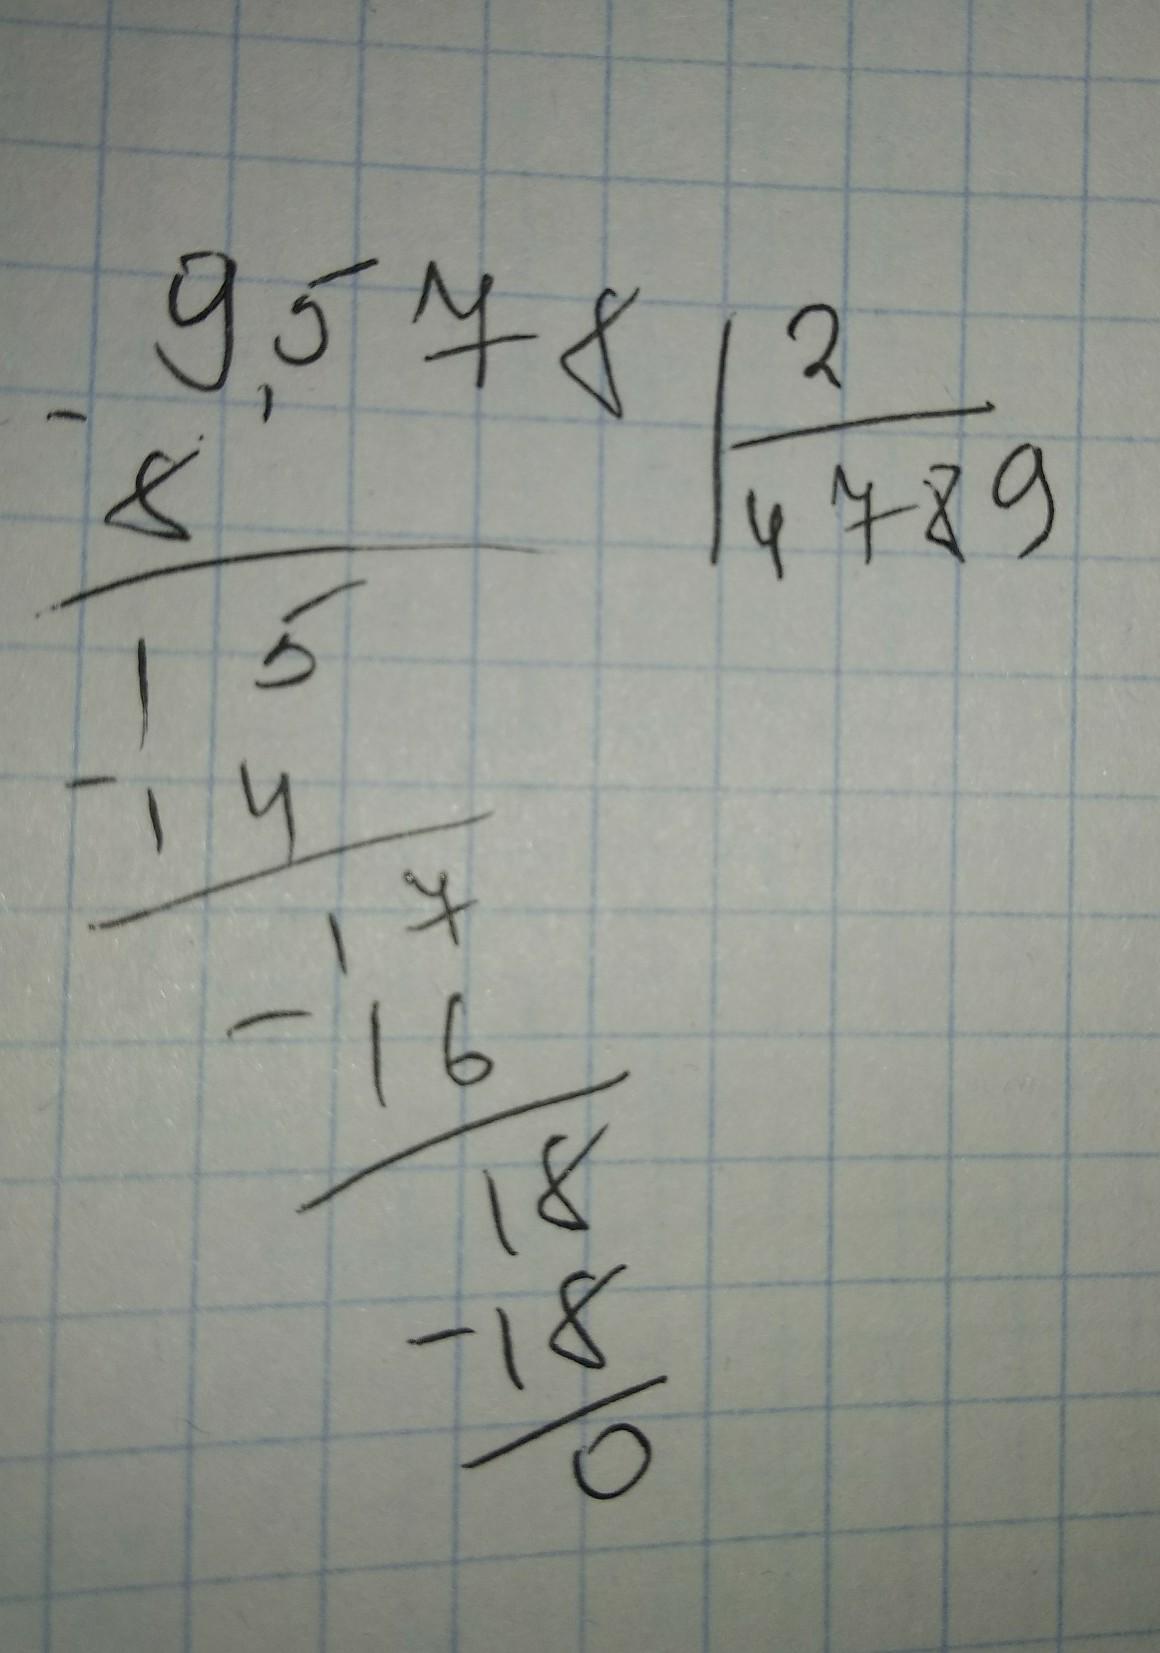 9,578 | 2
- 8 | 4789
15
- 14
17
- 16
18
- 18
0